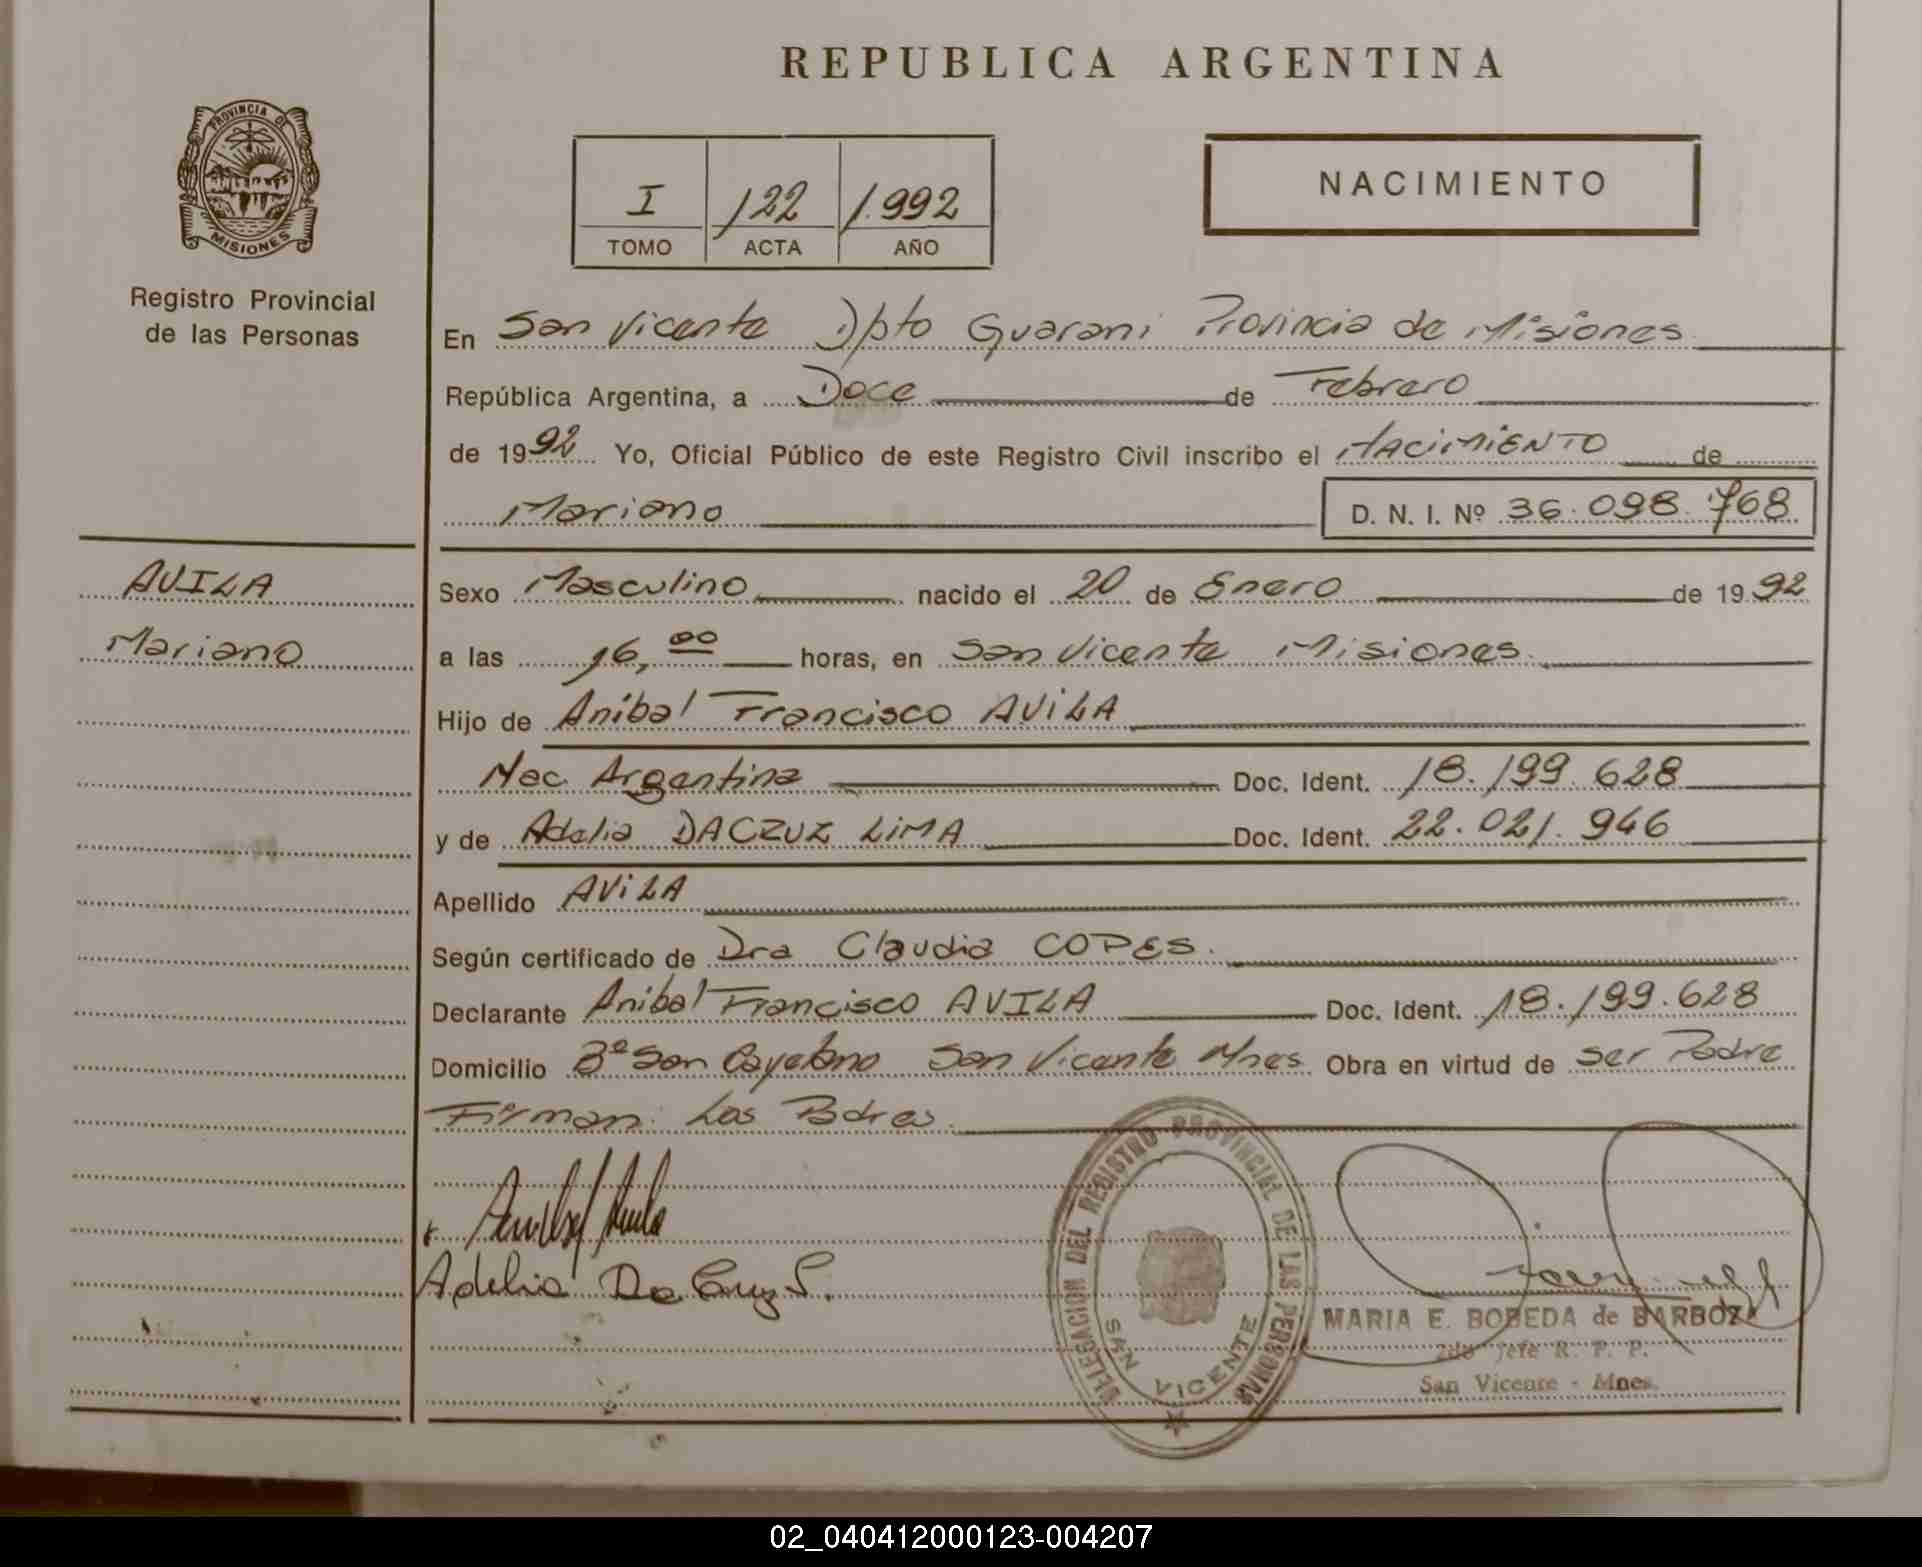 REPUBLICA ARGENTINA
PROVINCIA DE
MISIONES
Registro Provincial
de las Personas
I 122 1.992
TOMO ACTA AÑO
NACIMIENTO
En San Vicente Dpto Guarani Provincia de Misiones
República Argentina, a Doce de Febrero
de 1992 Yo, Oficial Público de este Registro Civil inscribo el NACIMIENTO de
Mariano D. N. I. Nº 36.098.768
AVILA
Mariano
Sexo Masculino nacido el 20 de Enero de 1992
a las 16,00 horas, en San Vicente Misiones.
Hijo de Anibal Francisco AViLA
Nac. Argentina Doc. Ident. 18.199.628
y de Adelia DACZUZ LiMA Doc. Ident. 22.021.946
Apellido AViLA
Según certificado de Dra Claudia COPES.
Declarante Anibal Francisco AVILA Doc. Ident. 18.199.628
Domicilio Bº San Cayetano San Vicente Mnes. Obra en virtud de ser Padre
Firman: Los Padres.
Adelia Da Cruz L.
DELEGACION DEL REGISTRO PROVINCIAL DE LAS PERSONAS
SAN VICENTE
MARIA E. BOBEDA de BARBOZA
2do Jefe R. P. P.
San Vicente - Mnes.
02_040412000123-004207